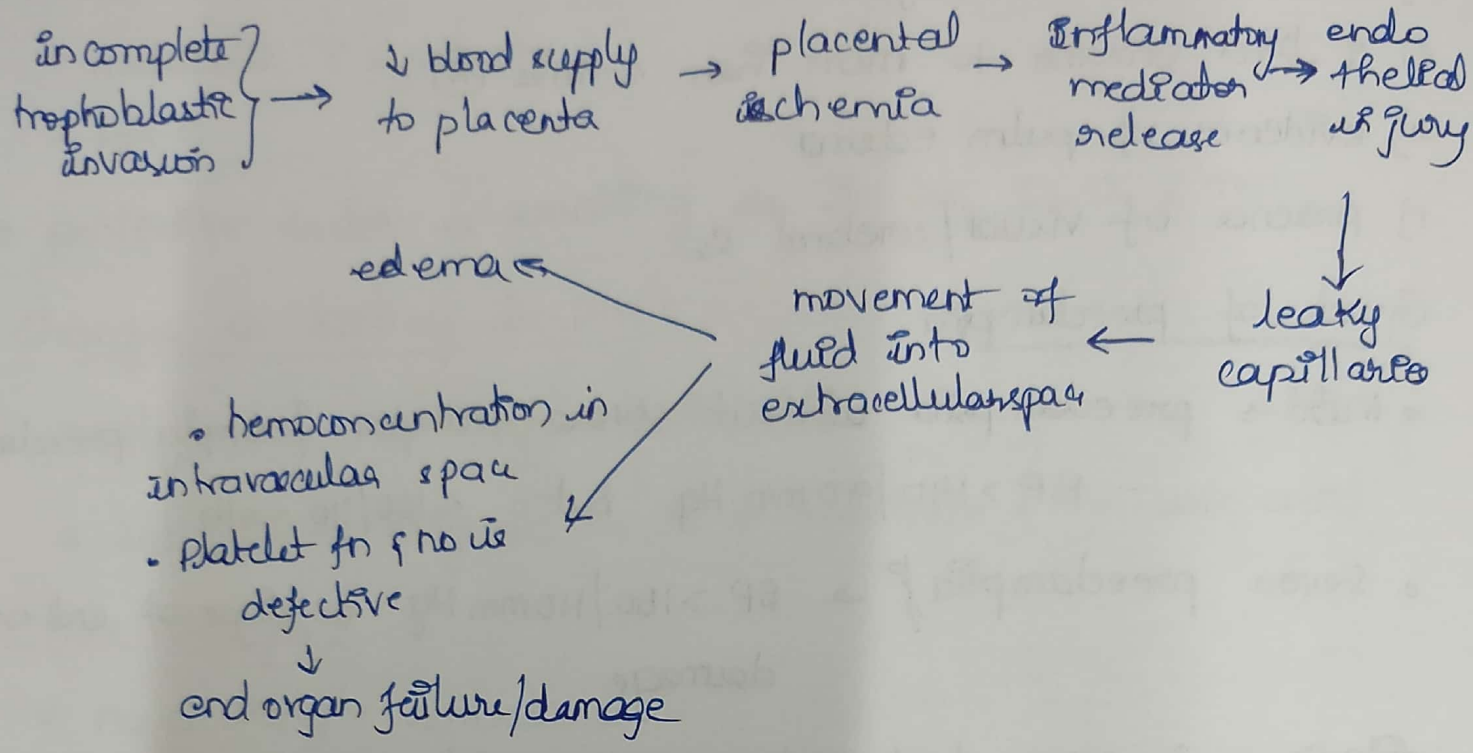 incomplete
trophoblastic
invasion
→ ↓ blood supply
to placenta
→ placental
ischemia
→ Inflammatory
mediator
release
→ endo
thelial
injury
↓
leaky
capillaries
← movement of
fluid into
extracellular space
edema
• hemoconcentration in
intravascular space
• Platelet fn & no is
defective
↓
end organ failure/damage